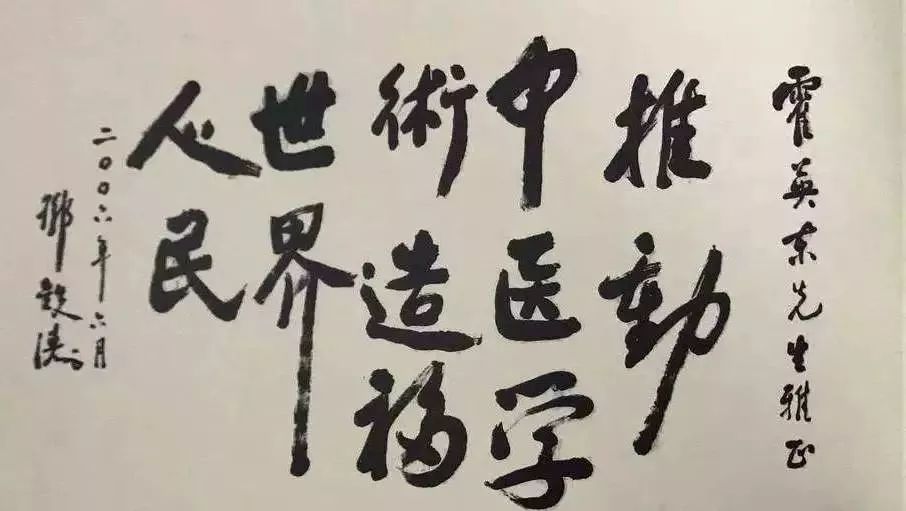 霍英东先生雅正
推動
中医学
術造福
世界
人民
二〇〇六年六月
鄧鉄涛